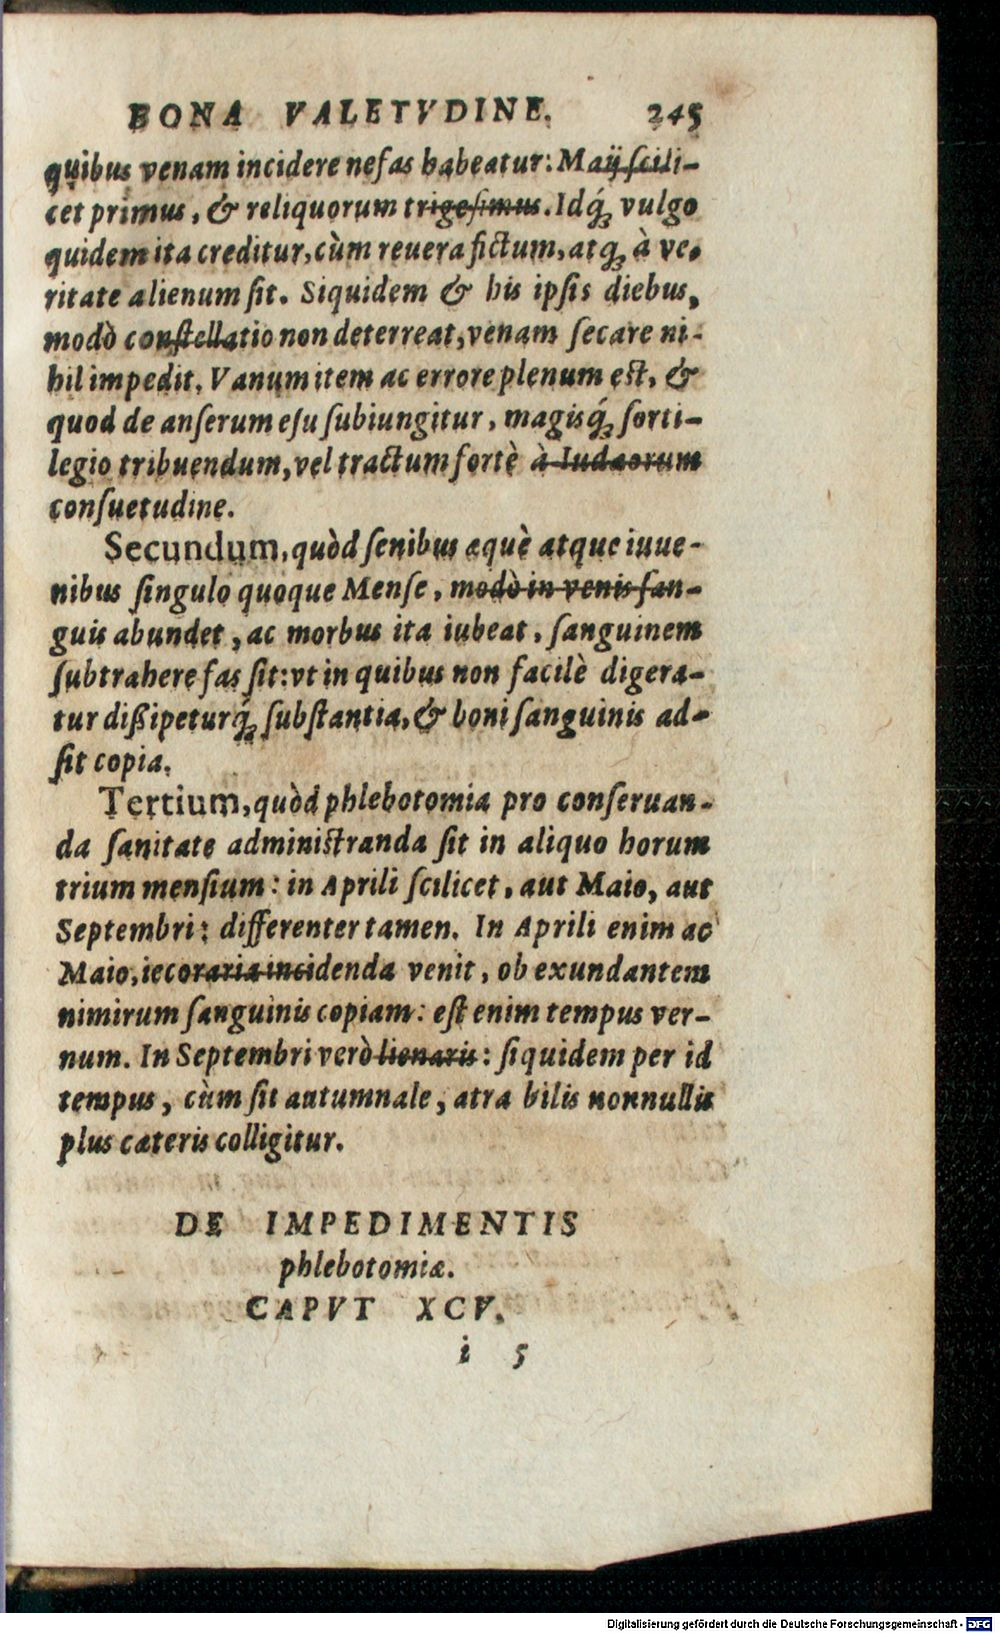 BONA VALETVDINE. 245
quibus venam incidere nefas habeatur: Maij scili-
cet primus, & reliquorum trigesimus. Idq́; vulgo
quidem ita creditur, cùm reuera fictum, atq; à ve-
ritate alienum sit. Siquidem & his ipsis diebus,
modò constellatio non deterreat, venam secare ni-
hil impedit. Vanum item ac errore plenum est, &
quod de anserum esu subiungitur, magisq́; sorti-
legio tribuendum, vel tractum fortè à Iudæorum
consuetudine.
Secundum, quòd senibus æquè atque iuue-
nibus singulo quoque Mense, modò in venis san-
guis abundet, ac morbus ita iubeat, sanguinem
subtrahere fas sit: vt in quibus non facilè digera-
tur dißipeturq́; substantia, & boni sanguinis ad-
sit copia.
Tertium, quòd phlebotomia pro conseruan-
da sanitate administranda sit in aliquo horum
trium mensium: in Aprili scilicet, aut Maio, aut
Septembri: differenter tamen. In Aprili enim ac
Maio, iecoraria incidenda venit, ob exundantem
nimirum sanguinis copiam: est enim tempus ver-
num. In Septembri verò lienaris: siquidem per id
tempus, cùm sit autumnale, atra bilis nonnullis
plus cæteris colligitur.
DE IMPEDIMENTIS
phlebotomiæ.
CAPVT XCV.
i 5
Digitalisierung gefördert durch die Deutsche Forschungsgemeinschaft - DFG